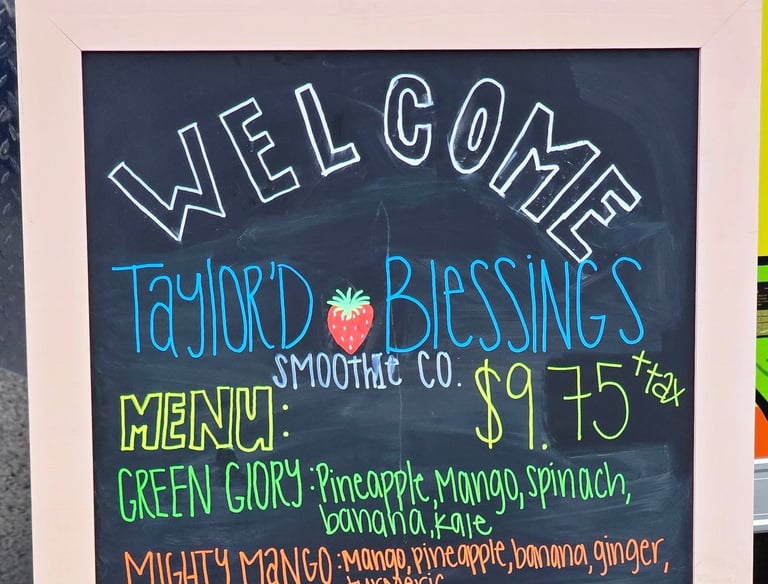 WELCOME
Taylor'D Blessings
Smoothie CO.
$9.75 +tax
MENU:
GREEN GlORY: Pineapple, Mango, spinach,
banana, kale
MIGHTY MANGO: Mango, pineapple, banana, ginger,
turmeric